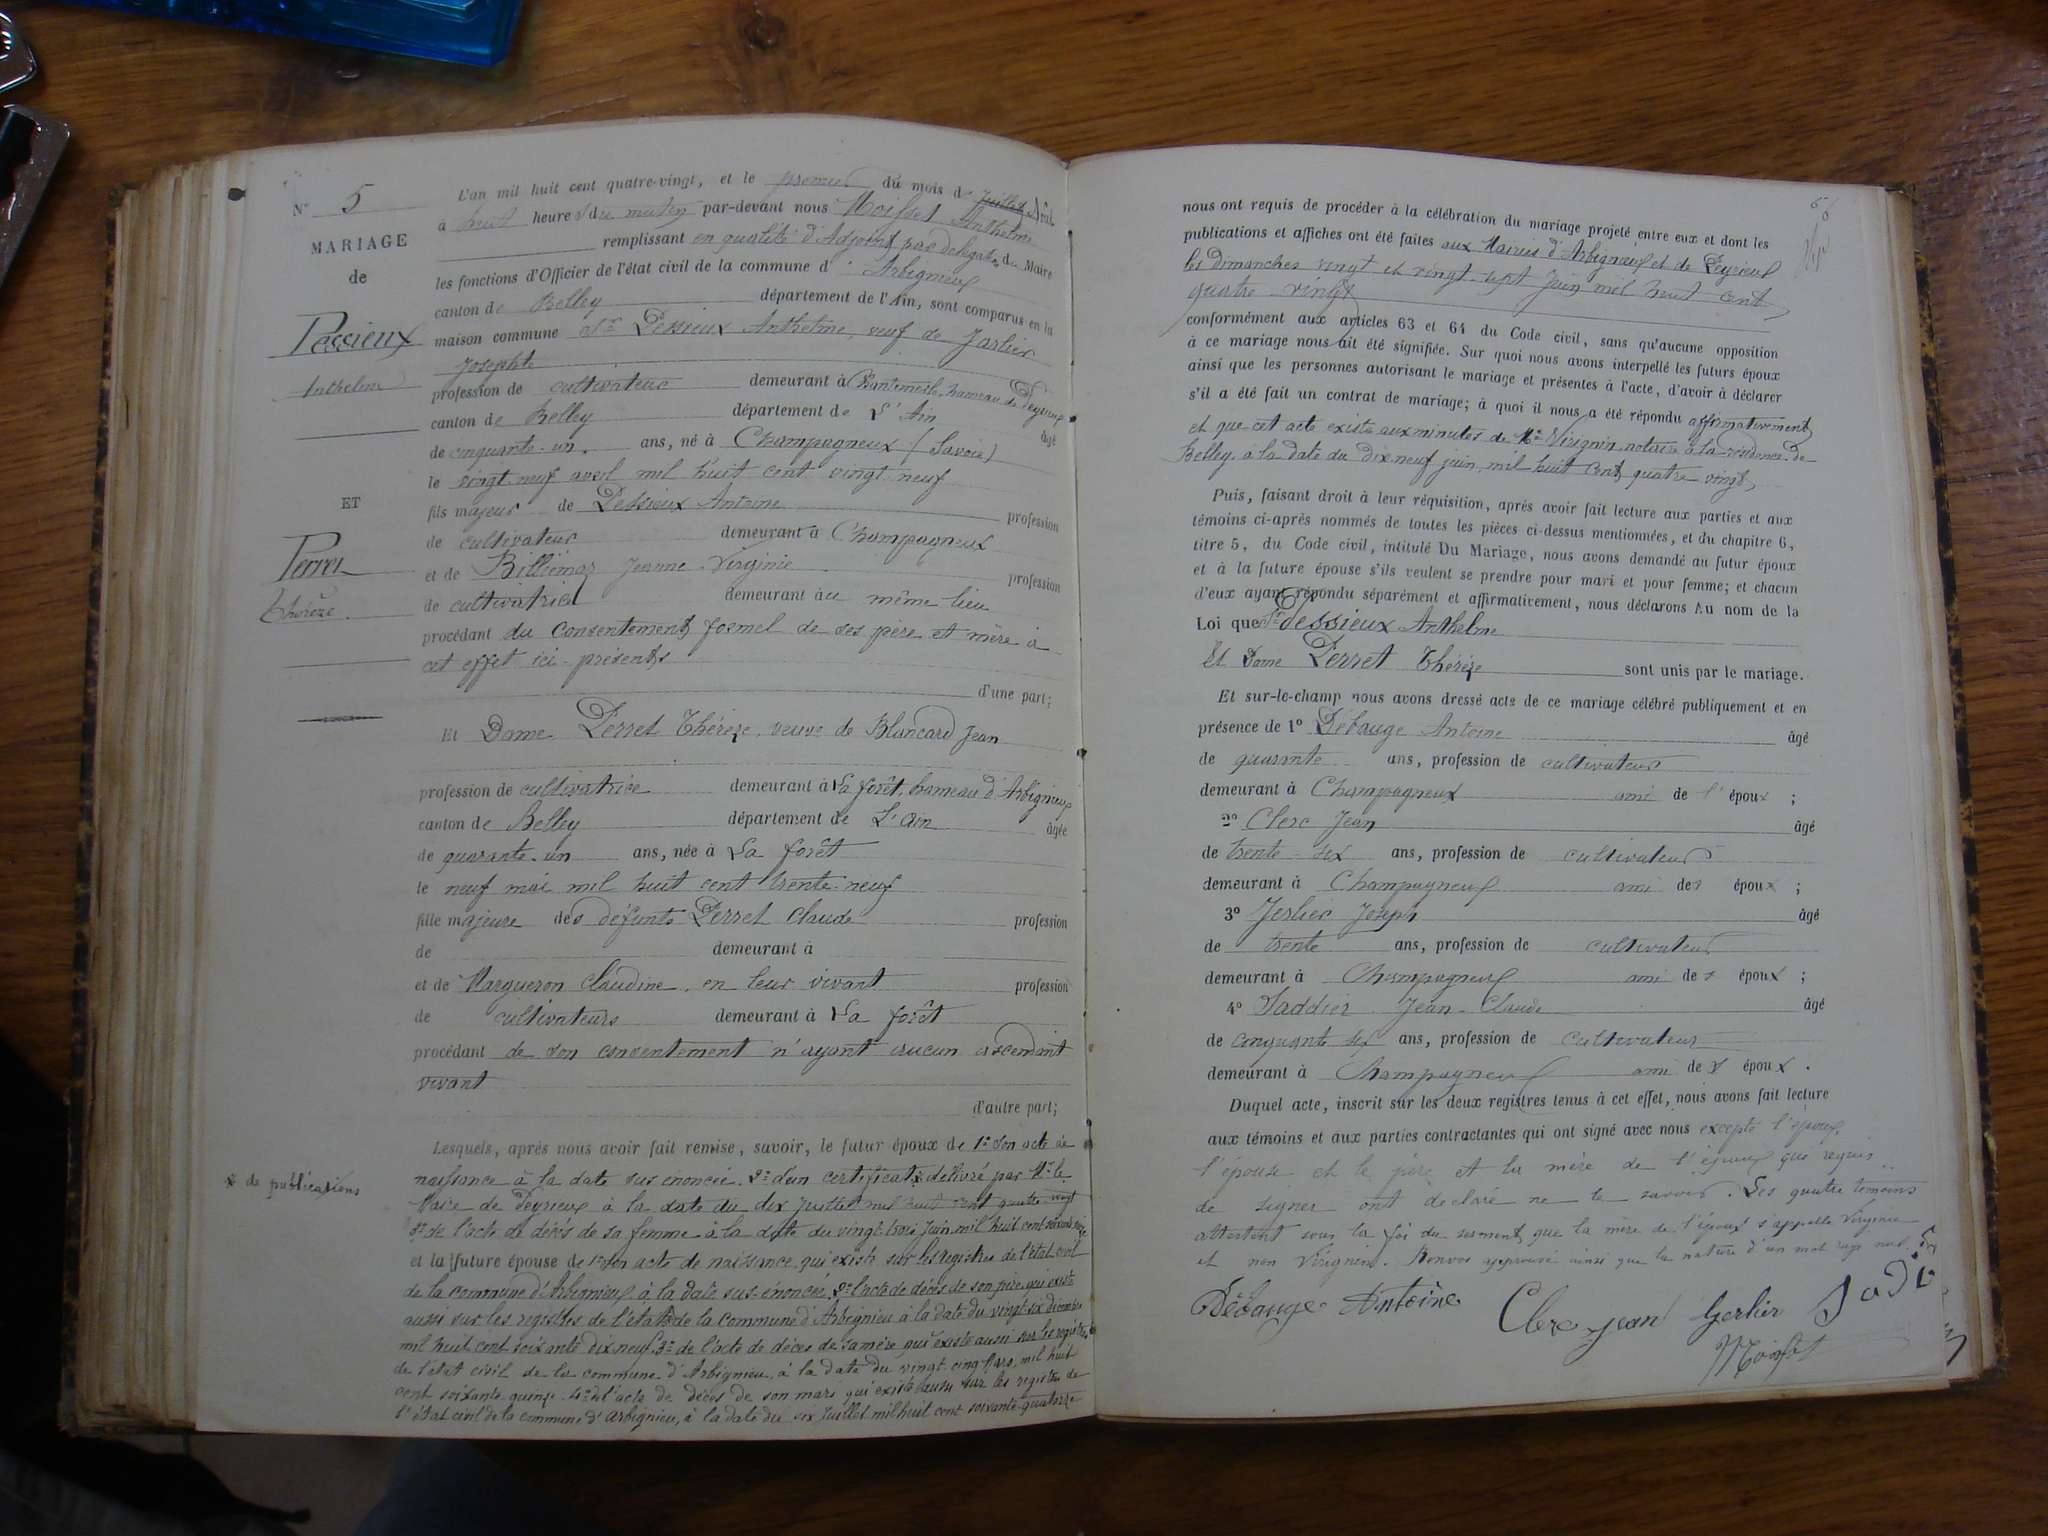 N° 5
MARIAGE
de
Pessieux
Anthelme
ET
Perret
Thérèze
L'an mil huit cent quatre-vingt, et le premier du mois d
à huit heures du matin par-devant nous Moisset Anthelme
remplissant en qualité d'Adjoint par délégation du Maire
les fonctions d'Officier de l'état civil de la commune d' Arbignieux
canton de Belley département de l'Ain, sont comparus en la
maison commune Sr Pessieux Anthelme, veuf de Jarlier
Josephte
profession de cultivateur demeurant à hameau de Peyrieux
canton de Belley département de L'Ain âgé
de cinquante-un ans, né à Champagneux (Savoie)
le vingt-neuf avril mil huit cent vingt-neuf
fils majeur de Pessieux Antoine profession
de cultivateur demeurant à Champagneux
et de Billiémaz Jeanne Virginie profession
de cultivatrice demeurant au même lieu
procédant du consentement formel de ses père et mère à
cet effet ici présents
d'une part;
Et Dame Perret Thérèze, veuve de Blancard Jean
profession de cultivatrice demeurant à La forêt, hameau d'Arbignieux
canton de Belley département de L'Ain âgée
de quarante-un ans, née à La forêt
le neuf mai mil huit cent trente-neuf
fille majeure des défunts Perret Claude profession
de demeurant à
et de Margueron Claudine, en leur vivant profession
de cultivateurs demeurant à La forêt
procédant de son consentement n'ayant aucun ascendant
vivant
d'autre part;
Lesquels, après nous avoir fait remise, savoir, le futur époux de 1° Son acte de
naissance à la date sus énoncée. 2° d'un certificat x délivré par Mr le
x de publications
Maire de Peyrieux à la date du dix Juillet mil huit cent quatre vingt
3° de l'acte de décès de sa femme à la date du vingt trois Juin mil huit cent soixante
et la future épouse de 1° Son acte de naissance qui existe sur les registres de l'état civil
de la commune d'Arbignieux à la date sus-énoncée, 2° l'acte de décès de son père qui existe
aussi sur les registres de l'état de la commune d'Arbignieu à la date du vingt-six décembre
mil huit cent soixante dix neuf. 3° de l'acte de décès de sa mère qui existe aussi sur les registres
de l'état civil de la commune d'Arbignieu, à la date du vingt cinq Mars, mil huit
cent soixante quinze. 4° de l'acte de décès de son mari qui existe aussi sur les registres de
l'état civil de la commune d'Arbignieu, à la date du six Juillet mil huit cent soixante-quatorze
nous ont requis de procéder à la célébration du mariage projeté entre eux et dont les
publications et affiches ont été faites aux Mairies d'Arbignieux et de Peyrieux
les dimanches vingt et vingt-sept Juin mil huit cent
quatre vingt
conformément aux articles 63 et 64 du Code civil, sans qu'aucune opposition
à ce mariage nous ait été signifiée. Sur quoi nous avons interpellé les futurs époux
ainsi que les personnes autorisant le mariage et présentes à l'acte, d'avoir à déclarer
s'il a été fait un contrat de mariage; à quoi il nous a été répondu affirmativement
et que cet acte existe aux minutes de Me notaire à la résidence de
Belley, à la date du dix neuf juin, mil huit cent quatre vingt
Puis, faisant droit à leur réquisition, après avoir fait lecture aux parties et aux
témoins ci-après nommés de toutes les pièces ci-dessus mentionnées, et du chapitre 6,
titre 5, du Code civil, intitulé Du Mariage, nous avons demandé au futur époux
et à la future épouse s'ils veulent se prendre pour mari et pour femme; et chacun
d'eux ayant répondu séparément et affirmativement, nous déclarons Au nom de la
Loi que Sr Pessieux Anthelme
Et Dame Perret Thérèze sont unis par le mariage.
Et sur-le-champ nous avons dressé acte de ce mariage célébré publiquement et en
présence de 1° Débauge Antoine âgé
de quarante ans, profession de cultivateur
demeurant à Champagneux ami de l' époux ;
2° Clerc Jean âgé
de trente-six ans, profession de cultivateur
demeurant à Champagneux ami des époux ;
3° Jerlier Joseph âgé
de trente ans, profession de cultivateur
demeurant à Champagneux ami des époux ;
4° Saddier Jean-Claude âgé
de cinquante six ans, profession de cultivateur
demeurant à Champagneux ami des époux.
Duquel acte, inscrit sur les deux registres tenus à cet effet, nous avons fait lecture
aux témoins et aux parties contractantes qui ont signé avec nous excepté l'époux,
l'épouse et le père et la mère de l'époux qui requis
de signer ont déclaré ne le savoir. Les quatre témoins
attestent sous la foi du serment que la mère de l'époux s'appelle Virginie
et non Virignine. Renvoi approuvé ainsi que la rature d'un mot rayé nul.
Débauge Antoine Clerc jean Gerlier
Moisset